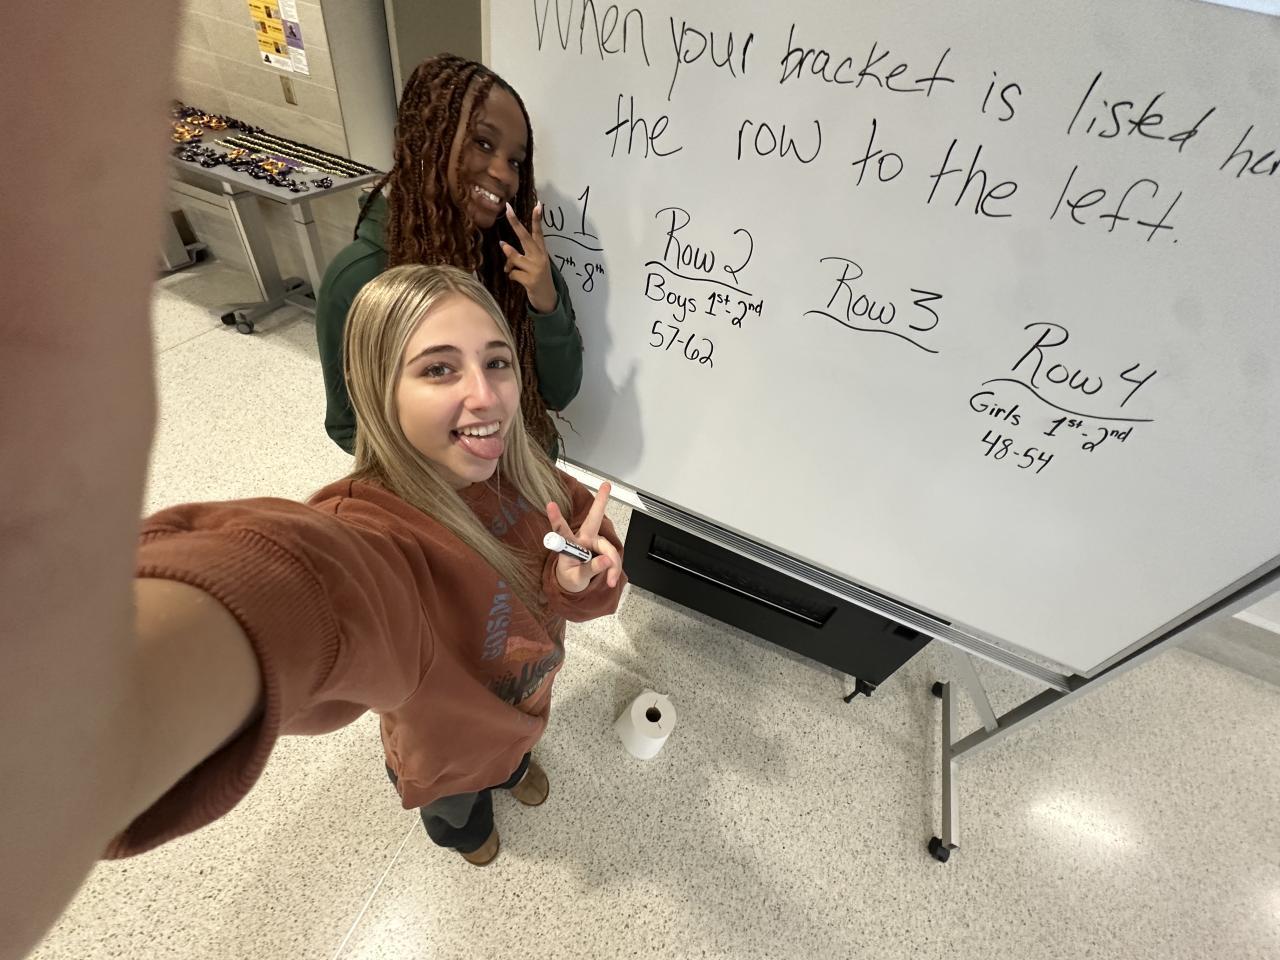 When your bracket is listed
the row to the left.
Row 2
Boys 1st-2nd
57-62
Row 3
Row 4
Girls 1st-2nd
48-54
w 1
7th-8th